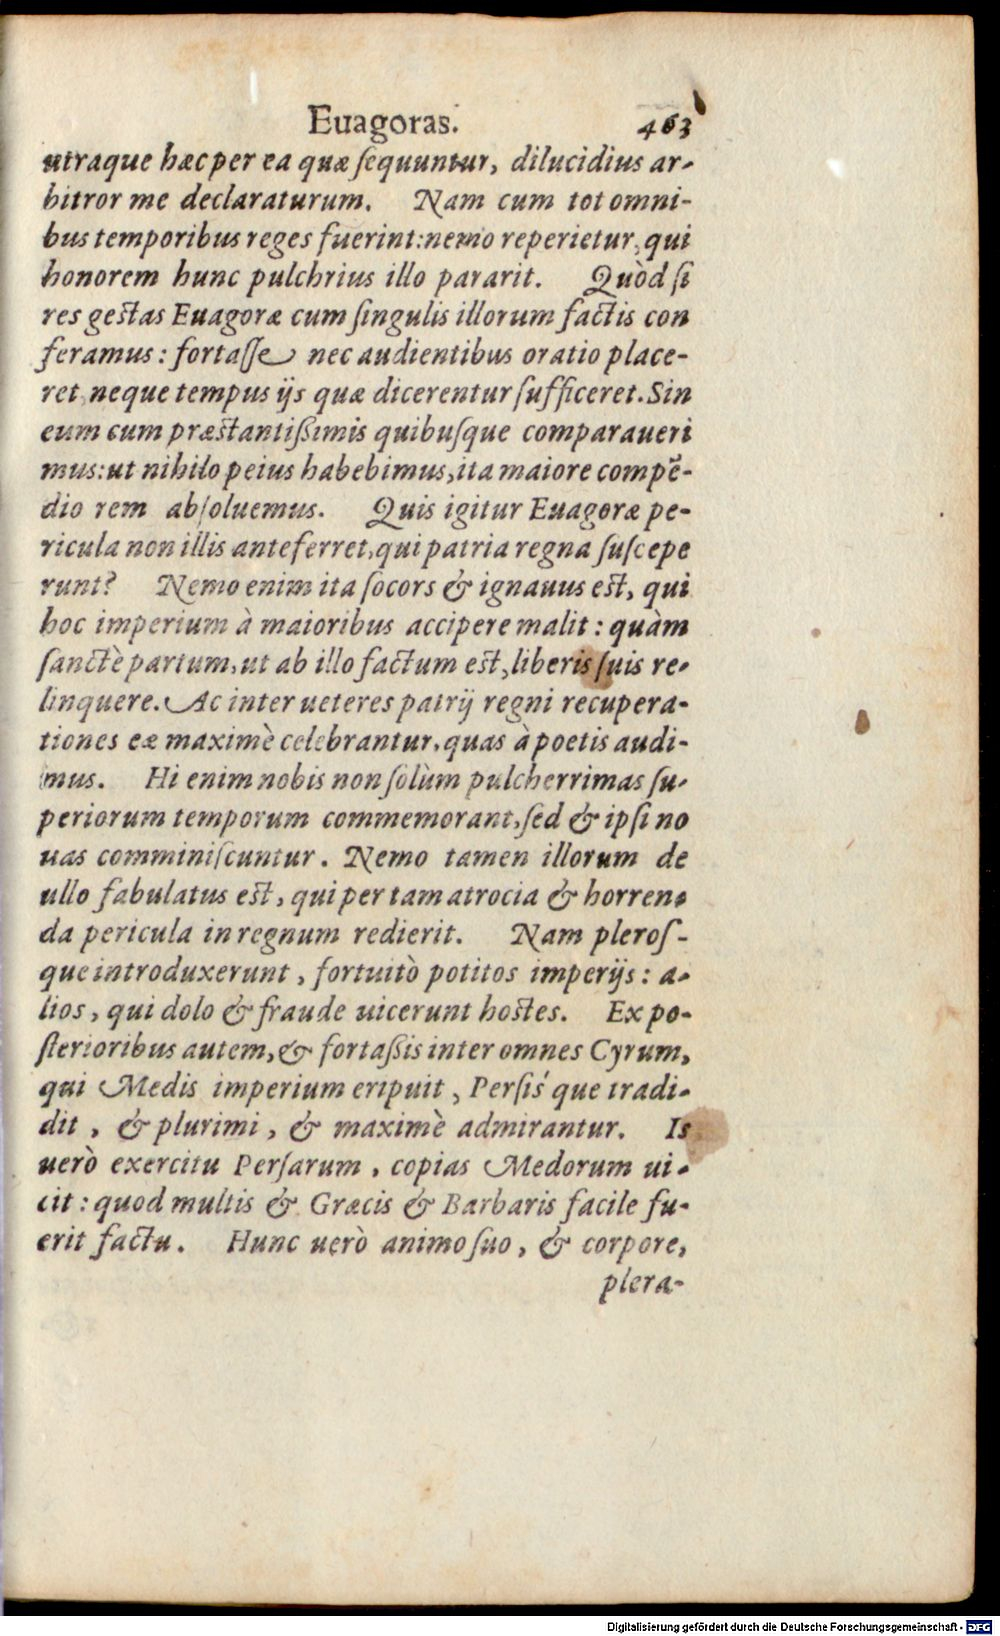 Euagoras. 463
utraque hæc per ea quæ ſequuntur, dilucidius ar-
bitror me declaraturum. Nam cum tot omni-
bus temporibus reges fuerint: nemo reperietur, qui
honorem hunc pulchrius illo pararit. Quòd ſi
res geſtas Euagoræ cum ſingulis illorum factis con
feramus: fortaſſe nec audientibus oratio place-
ret, neque tempus ijs quæ dicerentur ſufficeret. Sin
eum cum præſtantißimis quibuſque comparaueri
mus: ut nihilo peius habebimus, ita maiore compẽ-
dio rem abſoluemus. Quis igitur Euagoræ pe-
ricula non illis anteferret, qui patria regna ſuſcepe
runt? Nemo enim ita ſocors & ignauus eſt, qui
hoc imperium à maioribus accipere malit: quàm
ſanctè partum, ut ab illo factum eſt, liberis ſuis re-
linquere. Ac inter ueteres patrij regni recupera-
tiones eæ maximè celebrantur, quas à poetis audi-
mus. Hi enim nobis non ſolùm pulcherrimas ſu-
periorum temporum commemorant, ſed & ipſi no
uas comminiſcuntur. Nemo tamen illorum de
ullo fabulatus eſt, qui per tam atrocia & horren-
da pericula in regnum redierit. Nam pleroſ-
que introduxerunt, fortuitò potitos imperijs: a-
lios, qui dolo & fraude uicerunt hoſtes. Ex po-
ſterioribus autem, & fortaßis inter omnes Cyrum,
qui Medis imperium eripuit, Perſiś que tradi-
dit, & plurimi, & maximè admirantur. Is
uerò exercitu Perſarum, copias Medorum ui-
cit: quod multis & Græcis & Barbaris facile fu-
erit factu. Hunc uerò animo ſuo, & corpore,
plera-
Digitalisierung gefördert durch die Deutsche Forschungsgemeinschaft - DFG